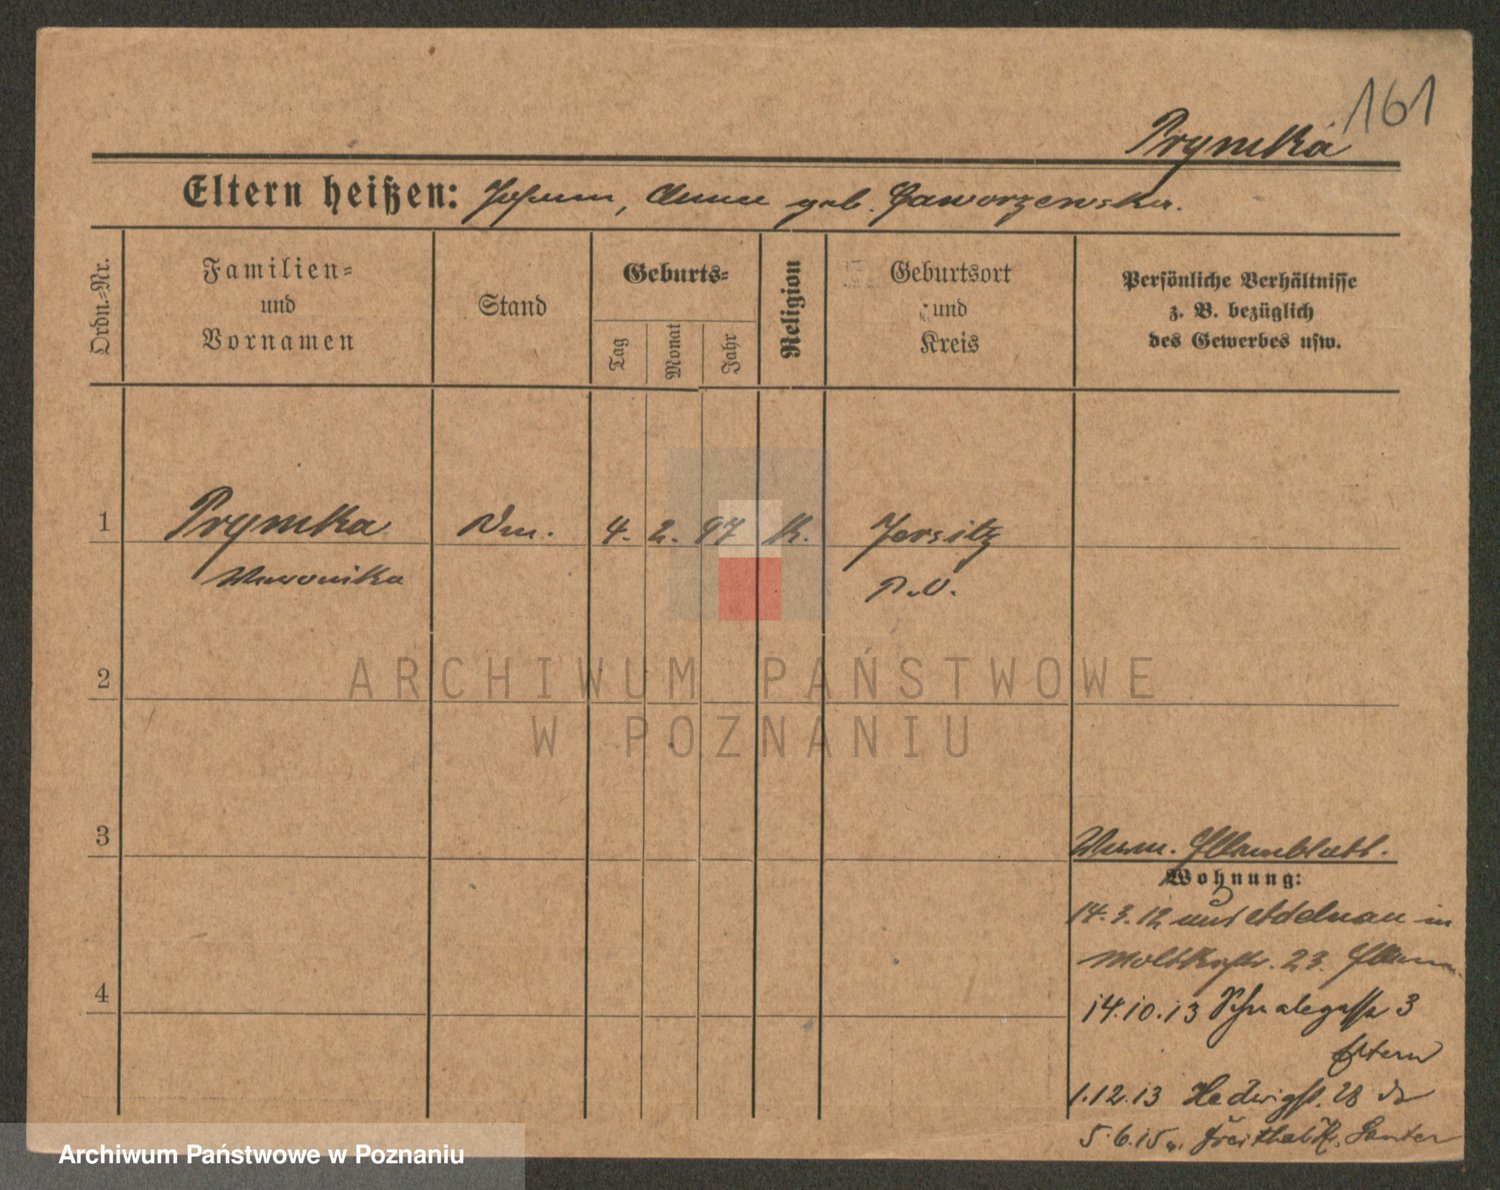 161
Prymka
Eltern heißen: Johann, Anna geb. Jaworzewska.
Ordn.-Nr.
Familien-
und
Vornamen
Stand
Geburts-
Tag
Monat
Jahr
Religion
Geburtsort
und
Kreis
Persönliche Verhältnisse
z. B. bezüglich
des Gewerbes usw.
1
Prymka
4. 2. 97 K. Jersitz
Weronika
P.O.
2
ARCHIWUM PAŃSTWOWE
W POZNANIU
3
Wohnung:
14.3.12 aus Adelnau in
Moltkestr. 23.
4
14.10.13 3
Eltern
1.12.13 Hedwigst. 28
5.6.15
Archiwum Państwowe w Poznaniu